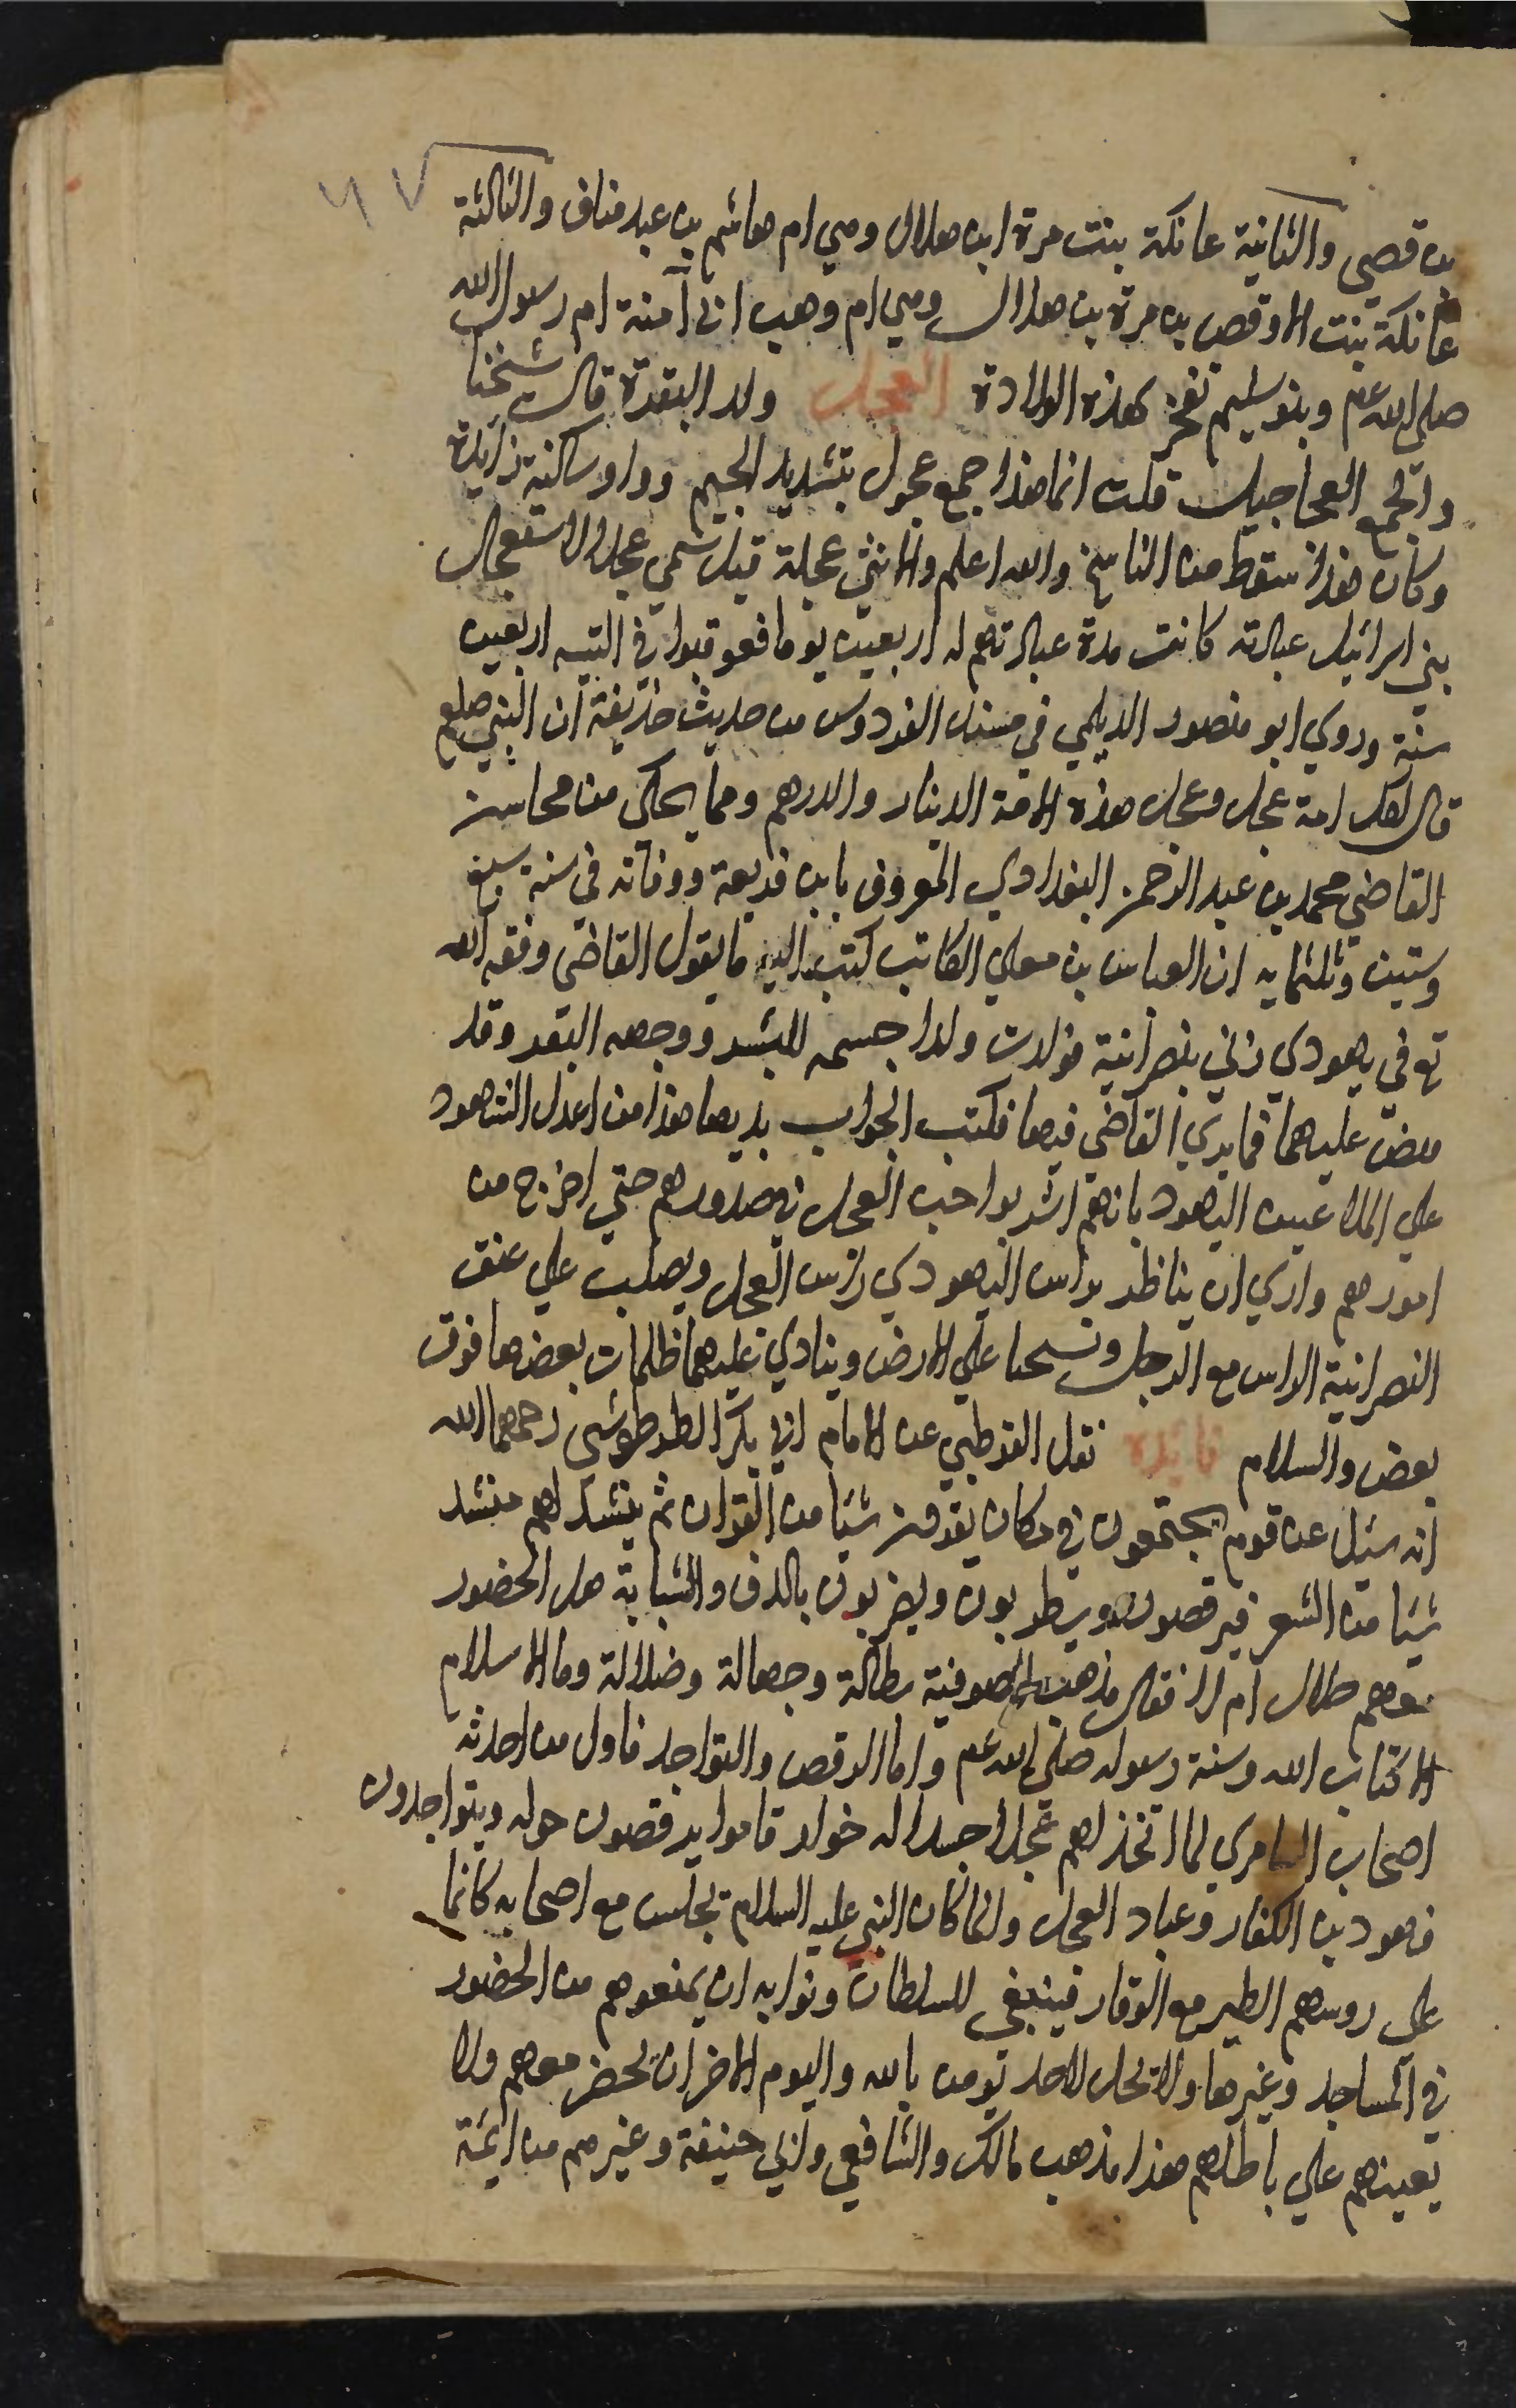 ٦٧
بن قصي والثانية عاتكة بنت مرة ابن هلال وهي ام هاشم بن عبد مناف والثالثة
عاتكة بنت الاوقص بن مرة بن هلال وهي ام وهب ابي آمنة ام رسول الله
صلى الله عم وبنو سليم تفخر بهذه الولادة العجل ولد البقرة قال شيخنا
والجمع العجاجيل قلت انما هذا جمع عجول بتشديد الجيم وواو ساكنة زايدة
وكان هذا سقط من الناسخ والله اعلم والانثى عجلة قيل سمي عجلا لاستعجال
بني اسرائيل عبادته كانت مدة عبادتهم له اربعين يوما فعوقبوا في التيه اربعين
سنة وروي ابو منصور الديلمي في مسند الفردوس من حديث حذيفة ان النبي صلعم
قال لكل امة عجل وعجل هذه الامة الدينار والدرهم ومما يحكى من محاسن
القاضي محمد بن عبد الرحمن البغدادي المعروف بابن قريعة ووفاته في سنة سبع
وستين وثلثمايه ان العباس بن معلي الكاتب كتب اليه ما يقول القاضي وفقه الله
تع في يهودي زني بنصرانية فولدت ولدا جسمه للبشر ووجهه للبقر وقد
قبض عليهما فما يري القاضي فيها فكتب الجواب بديها هذا من اعدل الشهود
علي الملاعين اليهود بانهم اشربوا حب العجل في صدورهم حتي اخرج من
امورهم واري ان يناظر براس اليهودي راس العجل ويصلب علي عنق
النصرانية الراس مع الرجل وتسحبا علي الارض وينادي عليهما ظلمات بعضها فوق
بعض والسلام فايدة نقل القرطبي عن الامام ابي بكر الطرطوشي رحمهما الله
انه سئل عن قوم يجتمعون في مكان يقرون شيا من القران ثم ينشد لهم منشد
شيا من الشعر فيرقصون ويطربون ويضربون بالدف والشبابة هل الحضور
معهم حلال ام لا فقال مذهب الصوفية بطالة وجهالة وضلالة وما الاسلام
الا كتاب الله وسنة رسوله صلى الله عم واما الرقص والتواجد فاول من احدثه
اصحاب السامري لما اتخذ لهم عجلا جسدا له خوار قاموا يرقصون حوله ويتواجدون
فهو دين الكفار وعباد العجل وانما كان النبي عليه السلام يجلس مع اصحابه كانما
على روسهم الطير مع الوقار فينبغي للسلطان ونوابه ان يمنعوهم من الحضور
في المساجد وغيرها ولا يحل لاحد يومن بالله واليوم الاخر ان يحضر معهم ولا
يعينهم علي باطلهم هذا مذهب مالك والشافعي وابي حنيفة وغيرهم من ايمة